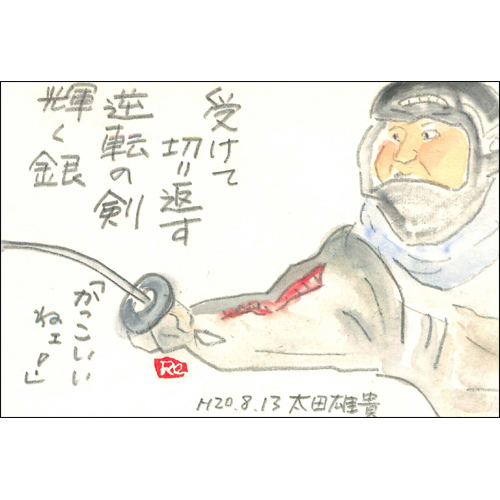 受けて
切り返す
逆転の剣
輝く銀
「かっこいい
ねェ。」
Re
H20.8.13 太田雄貴